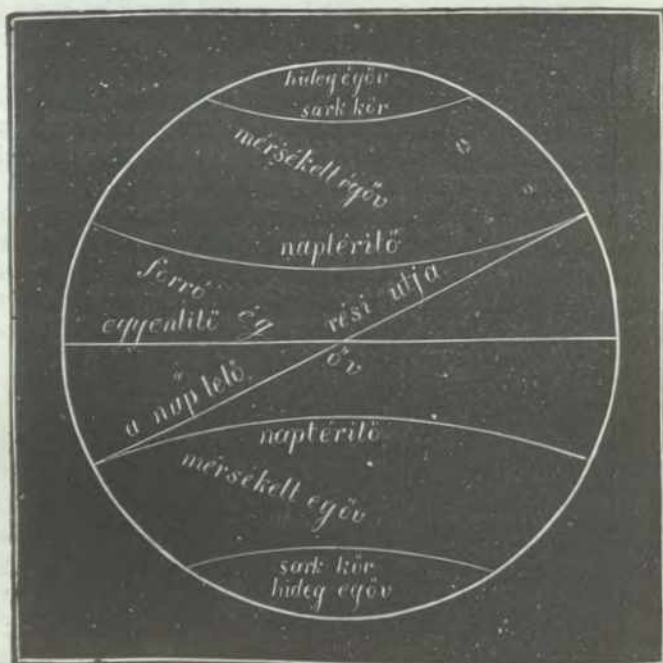 hideg égöv
sark kör
mérsékelt égöv
naptéritő
forró ég öv
egyentitő
a nap telő rési utja
naptéritő
mérsékelt egöv
sark kör
hideg egöv